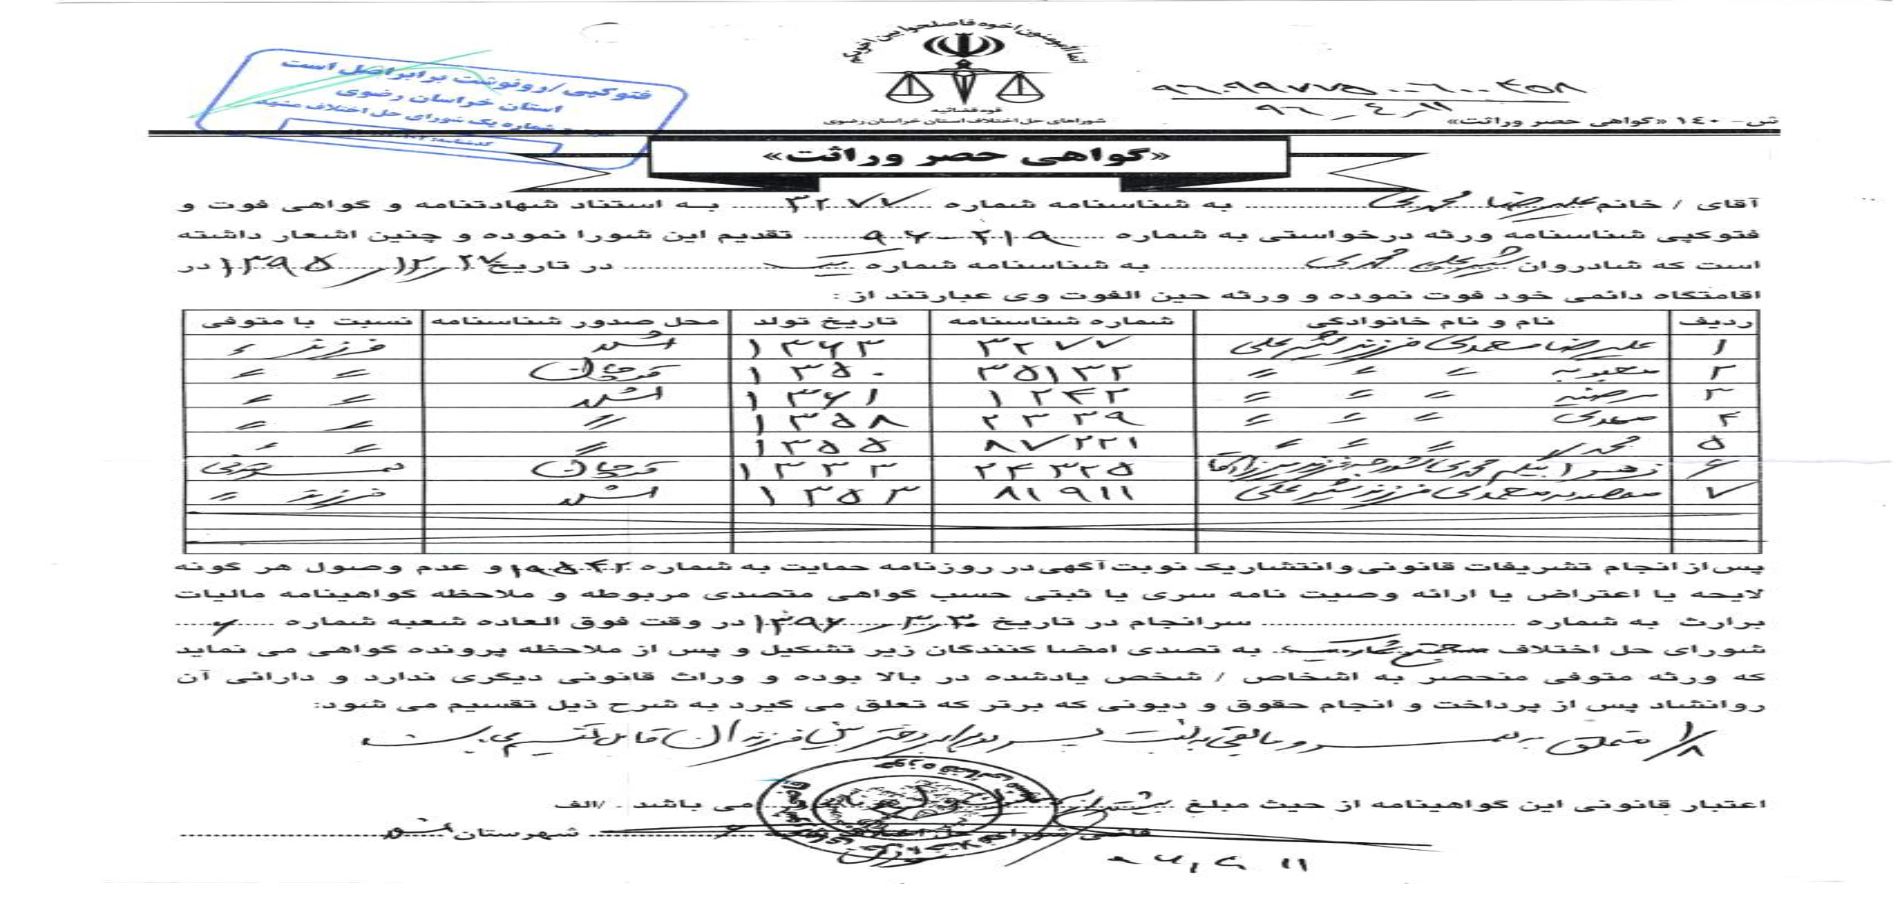 انما المومنون اخوه فاصلحوا بین اخویکم
قوه قضائیه
شوراهای حل اختلاف استان خراسان رضوی
فتوکپی/رونوشت برابر اصل است
استان خراسان رضوی
شماره یک شورای حل اختلاف
۹۶۰۹۹۷۷۵۰۰۶۰۰۴۵۸
۹۶-۴-۱۱
ش- ۱۴۰ «گواهی حصر وراثت»
«گواهی حصر وراثت»
آقای / خانم علیرضا محمدی به شناسنامه شماره ۳۲۷۷ به استناد شهادتنامه و گواهی فوت و
فتوکپی شناسنامه ورثه درخواستی به شماره ۹۶۰۲۱۹ تقدیم این شورا نموده و چنین اشعار داشته
است که شادروان شیرعلی محمدی به شناسنامه شماره یک در تاریخ ۱۳۹۵/۱۲/۲۷ در
اقامتگاه دائمی خود فوت نموده و ورثه حین الفوت وی عبارتند از :
ردیف نام و نام خانوادگی شماره شناسنامه تاریخ تولد محل صدور شناسنامه نسبت با متوفی
۱ علیرضا محمدی فرزند شیرعلی ۳۲۷۷ ۱۳۶۳ فرزند =
۲ = = = ۳۵۱۳۲ ۱۳۵۰ = =
۳ مرضیه = = = ۱۲۴۲ ۱۳۶۱ = =
۴ = = = ۲۳۳۹ ۱۳۵۸ = = =
۵ = = = ۸۷۲۲۱ ۱۳۵۵ = = =
۶ زهرا بیگم محمدی فرزند ۲۴۳۲۵ ۱۳۳۳ همسر متوفی
۷ معصومه محمدی فرزند شیرعلی ۸۱۹۱۱ ۱۳۵۳ فرزند =
پس از انجام تشریفات قانونی و انتشار یک نوبت آگهی در روزنامه حمایت به شماره ۱۹۵۴۲ و عدم وصول هر گونه
لایحه یا اعتراض یا ارائه وصیت نامه سری یا ثبتی حسب گواهی متصدی مربوطه و ملاحظه گواهینامه مالیات
برارث به شماره سرانجام در تاریخ ۱۳۹۶/۳/۳۰ در وقت فوق العاده شعبه شماره ۶
شورای حل اختلاف مجتمع شماره یک به تصدی امضا کنندگان زیر تشکیل و پس از ملاحظه پرونده گواهی می نماید
که ورثه متوفی منحصر به اشخاص / شخص یادشده در بالا بوده و وراث قانونی دیگری ندارد و دارائی آن
روانشاد پس از پرداخت و انجام حقوق و دیونی که برتر که تعلق می گیرد به شرح ذیل تقسیم می شود:
۱/۸ متعلق به همسر و مابقی به نسبت پسر دو برابر دختر بین فرزندان قابل تقسیم می باشد
اعتبار قانونی این گواهینامه از حیث مبلغ می باشد . /الف
قاضی شورای حل اختلاف شهرستان
۹۶/۴/۱۱